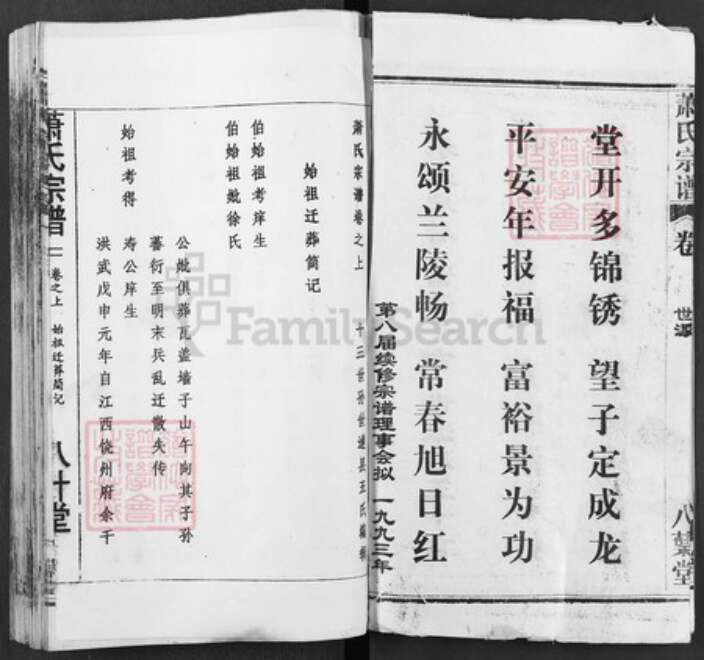 萧氏宗谱
卷
世源
八葉堂
堂开多锦锈 望子定成龙
平安年报福 富裕景为功
永颂兰陵畅 常春旭日红
第八届续修宗谱理事会拟 一九九三年
萧氏宗谱卷之上 十三世孙世
始祖迁葬简记
伯始祖考庠生
伯始祖妣徐氏
公妣俱葬瓦盖墙子山午向其子孙
蕃衍至明末兵乱迁散失传
始祖考得
寿公庠生
洪武戊申元年自江西饶州府余干
萧氏宗谱
卷之上
始祖迁葬简记
八叶堂
FamilySearch